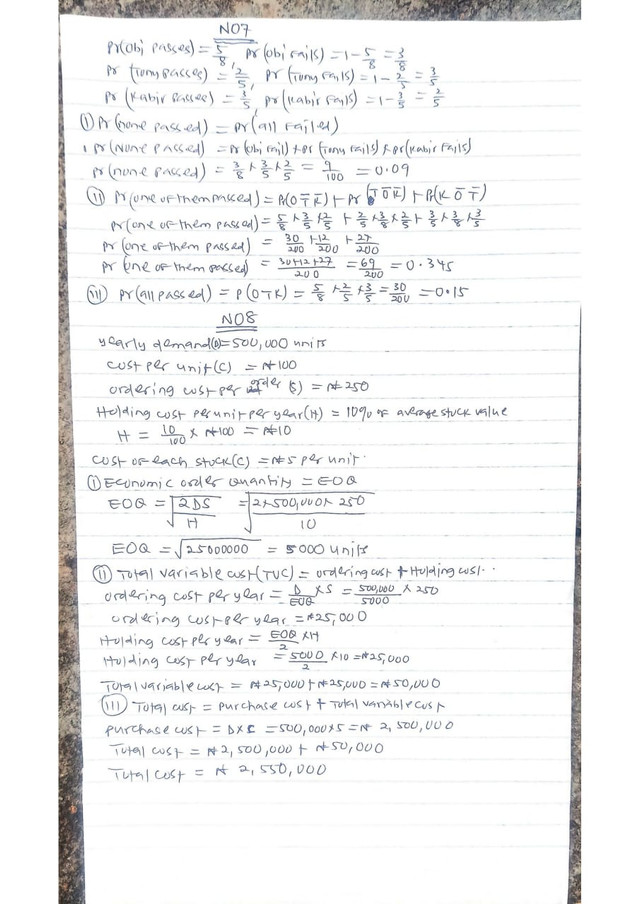 NO7
Pr(Obi passes) = 5/8, Pr(Obi fails) = 1 - 5/8 = 3/8
Pr (Tony passes) = 2/5, Pr (Tony fails) = 1 - 2/5 = 3/5
Pr (Kabir Passes) = 3/5, Pr(Kabir Fails) = 1 - 3/5 = 2/5
(I) Pr (none passed) = Pr (all Failed)
Pr (None passed) = Pr (Obi fail) × Pr (Tony fails) × Pr(Kabir Fails)
Pr (none passed) = 3/8 × 3/5 × 2/5 = 9/100 = 0.09
(II) Pr (one of them passed) = Pr(O T̄ K̄) + Pr (T Ō K̄) + Pr(K Ō T̄)
Pr (one of them passed) = 5/8 × 3/5 × 2/5 + 2/5 × 3/8 × 2/5 + 3/5 × 3/8 × 3/5
Pr (one of them passed) = 30/200 + 12/200 + 27/200
Pr (one of them passed) = 30+12+27/200 = 69/200 = 0.345
(III) Pr (all passed) = P (OTK) = 5/8 × 2/5 × 3/5 = 30/200 = 0.15
NO8
Yearly demand(D) = 500,000 units
Cost per unit (C) = ₦100
Ordering cost per order (S) = ₦250
Holding cost per unit per year (H) = 10% of average stock value
H = 10/100 × ₦100 = ₦10
Cost of each stock (C) = ₦5 per unit.
(I) Economic order quantity = EOQ
EOQ = √2DS/H = √2×500,000×250/10
EOQ = √25000000 = 5000 units
(II) Total variable cost (TVC) = ordering cost + Holding cost..
Ordering cost per year = D/EOQ × S = 500,000/5000 × 250
Ordering cost per year = ₦25,000
Holding cost per year = EOQ/2 × H
Holding cost per year = 5000/2 × 10 = ₦25,000
Total variable cost = ₦25,000 + ₦25,000 = ₦50,000
(III) Total cost = Purchase cost + Total variable cost
Purchase cost = D×C = 500,000×5 = ₦ 2,500,000
Total cost = ₦2,500,000 + ₦50,000
Total cost = ₦ 2,550,000